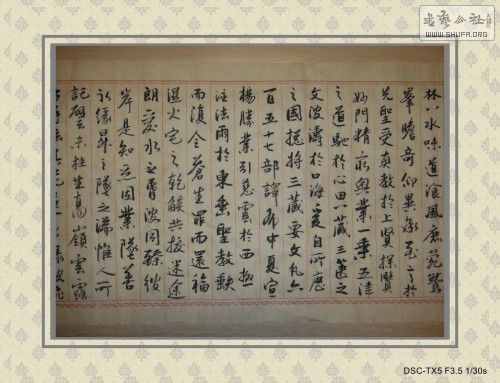 書藝公社
WWW.SHUFA.ORG
林八水味道湌風鹿菀鷲
峯瞻奇仰異承至言於
先聖受真教於上賢探賾
妙門精窮奧業一乘五律
之道馳於心田八藏三篋之
文波濤於口海爰自所歷
之國捴將三藏要文凡六
百五十七部譯布中夏宣
揚勝業引慈雲於西極
注法雨於東垂聖教缺
而復全蒼生罪而還福
濕火宅之乾燄共拔迷途
朗愛水之昏波同臻彼
岸是知惡因業墜善
以緣昇昇墜之端惟人所
託譬夫桂生高嶺雲露
DSC-TX5 F3.5 1/30s